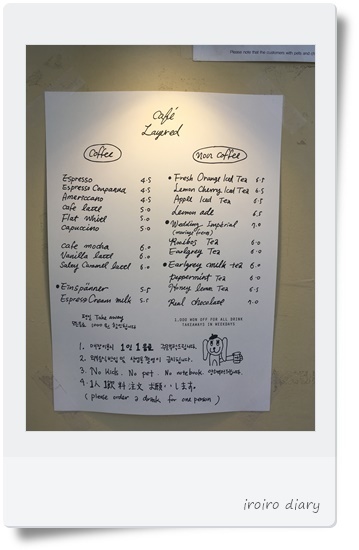 Please note that the customers with pets and
Café
Layered
Coffee
Non Coffee
Espresso 4.5
Espresso Conpanna 4.5
Americano 4.5
Cafe latte 5.0
Flat whiel 5.0
Capuccino 5.0
Cafe mocha 6.0
Vanilla latte 6.0
Salty Caramel latte 6.0
• Einspänner 5.5
Espresso Cream milk 5.5
• Fresh Orange Iced Tea 6.5
Lemon Cherry Iced Tea 6.5
Apple Iced Tea 6.5
Lemon ade 6.5
• Wedding Impérial 7.0
Rooibos Tea 6.0
Earlgrey Tea 6.0
• Earlgrey milk tea 6.0
Peppermint Tea 6.0
Honey lemon Tea 6.5
Real chocolate 7.0
평일 Take away
1000원
1,000 WON OFF FOR ALL DRINK
TAKEAWAYS IN WEEKDAYS
1. 1인 1음료
2. 금지합니다.
3. No Kids. No pet. No notebook
4. 1人 1飲料注文 お願いします。
( please order a drink for one person )
iroiro diary